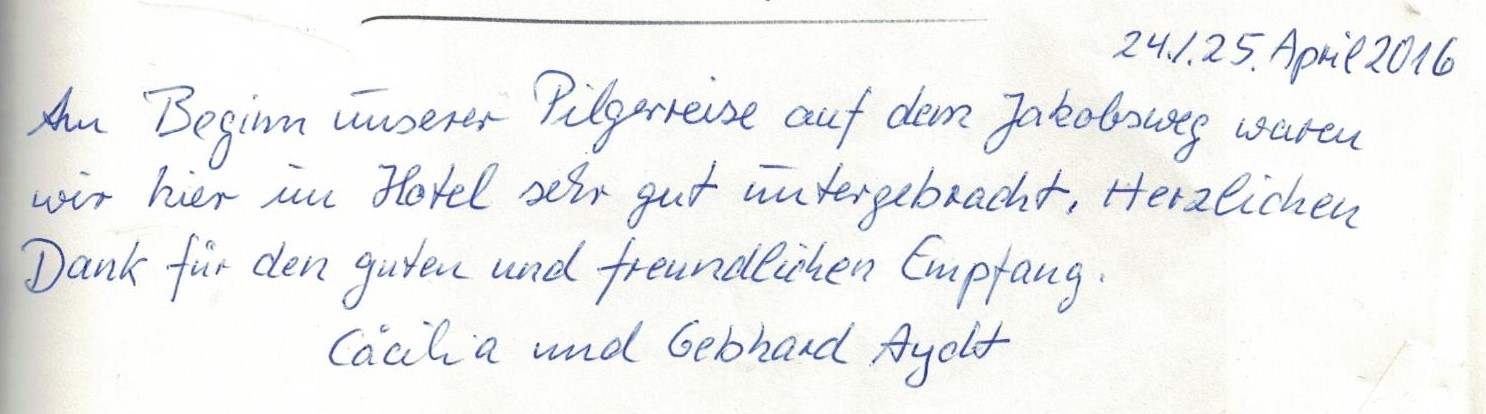 24./.25. April 2016
Am Beginn unserer Pilgerreise auf dem Jakobsweg waren
wir hier im Hotel sehr gut untergebracht. Herzlichen
Dank für den guten und freundlichen Empfang.
Cäcilia und Gebhard